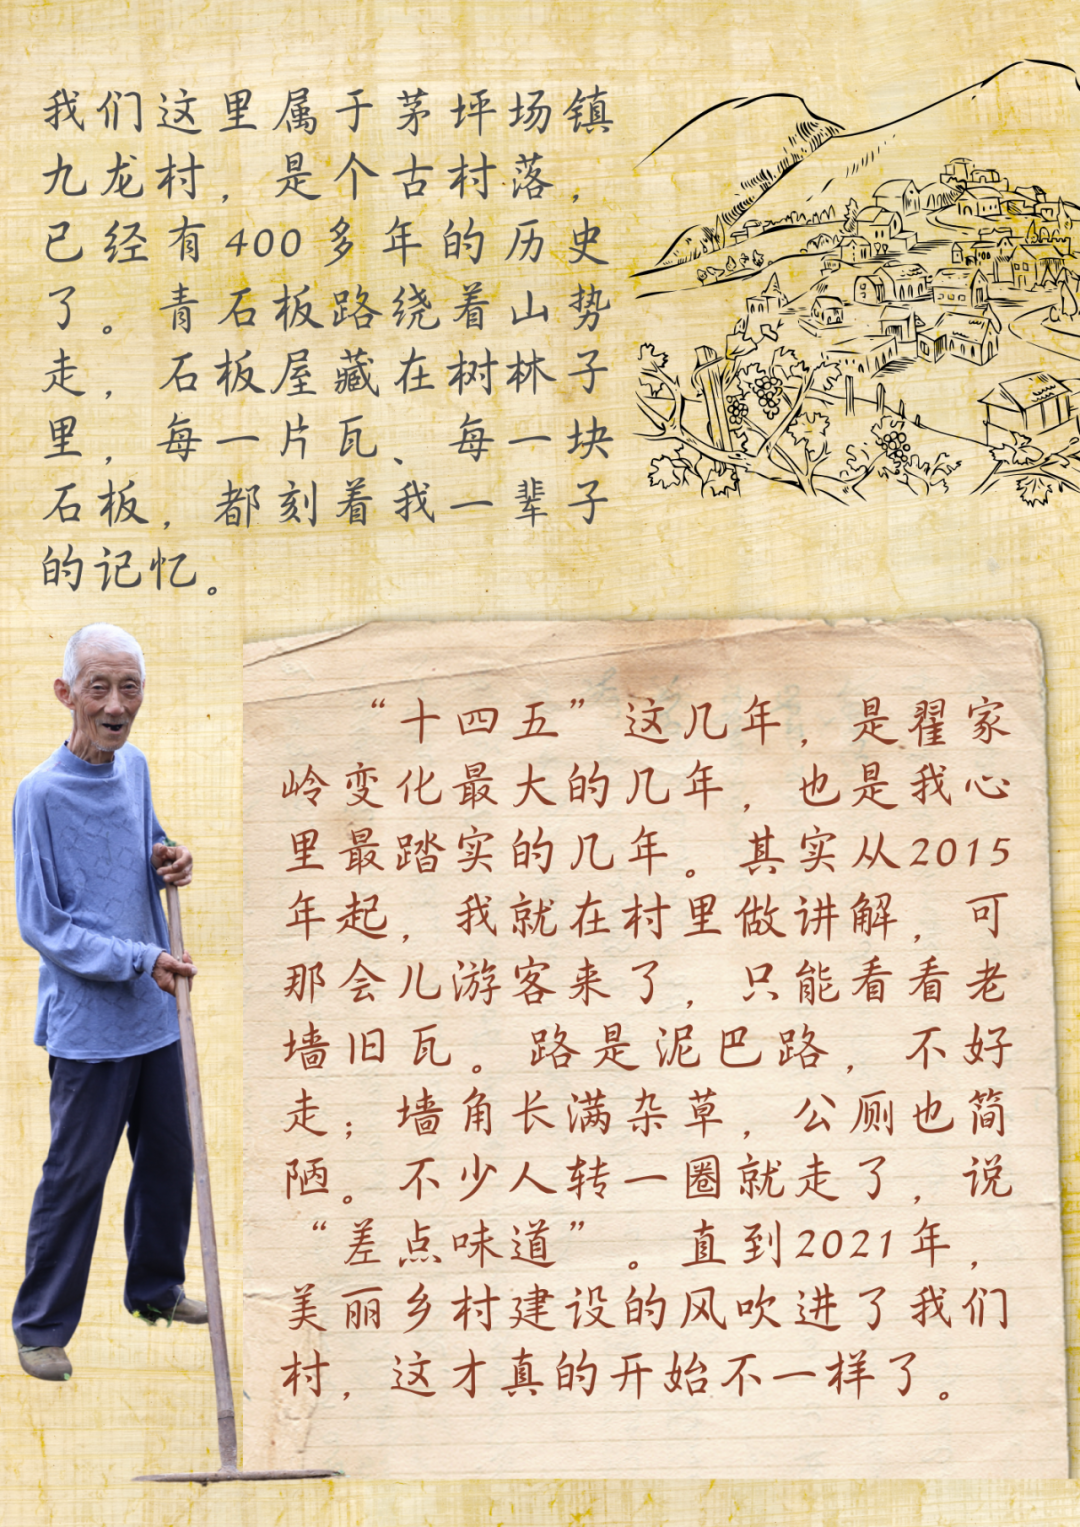 我们这里属于茅坪场镇
九龙村，是个古村落，
已经有400多年的历史
了。青石板路绕着山势
走，石板屋藏在树林子
里，每一片瓦、每一块
石板，都刻着我一辈子
的记忆。
“十四五”这几年，是翟家
岭变化最大的几年，也是我心
里最踏实的几年。其实从2015
年起，我就在村里做讲解，可
那会儿游客来了，只能看看老
墙旧瓦。路是泥巴路，不好
走；墙角长满杂草，公厕也简
陋。不少人转一圈就走了，说
“差点味道”。直到2021年，
美丽乡村建设的风吹进了我们
村，这才真的开始不一样了。